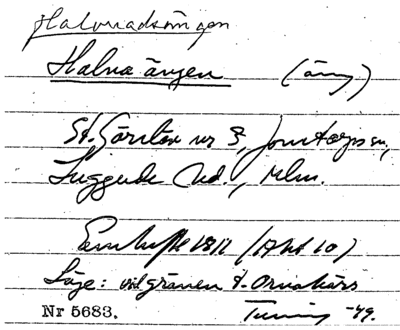 Halvnadsängen
Halvaängen (äng)
St. Görslöv nr 3, Jonstorps sn,
Luggude hd., Mlm.
Enskifte 1811 (Akt 10)
Läge: vid gränsen t. Ornakärs
Nr 5683. Tuning -49.